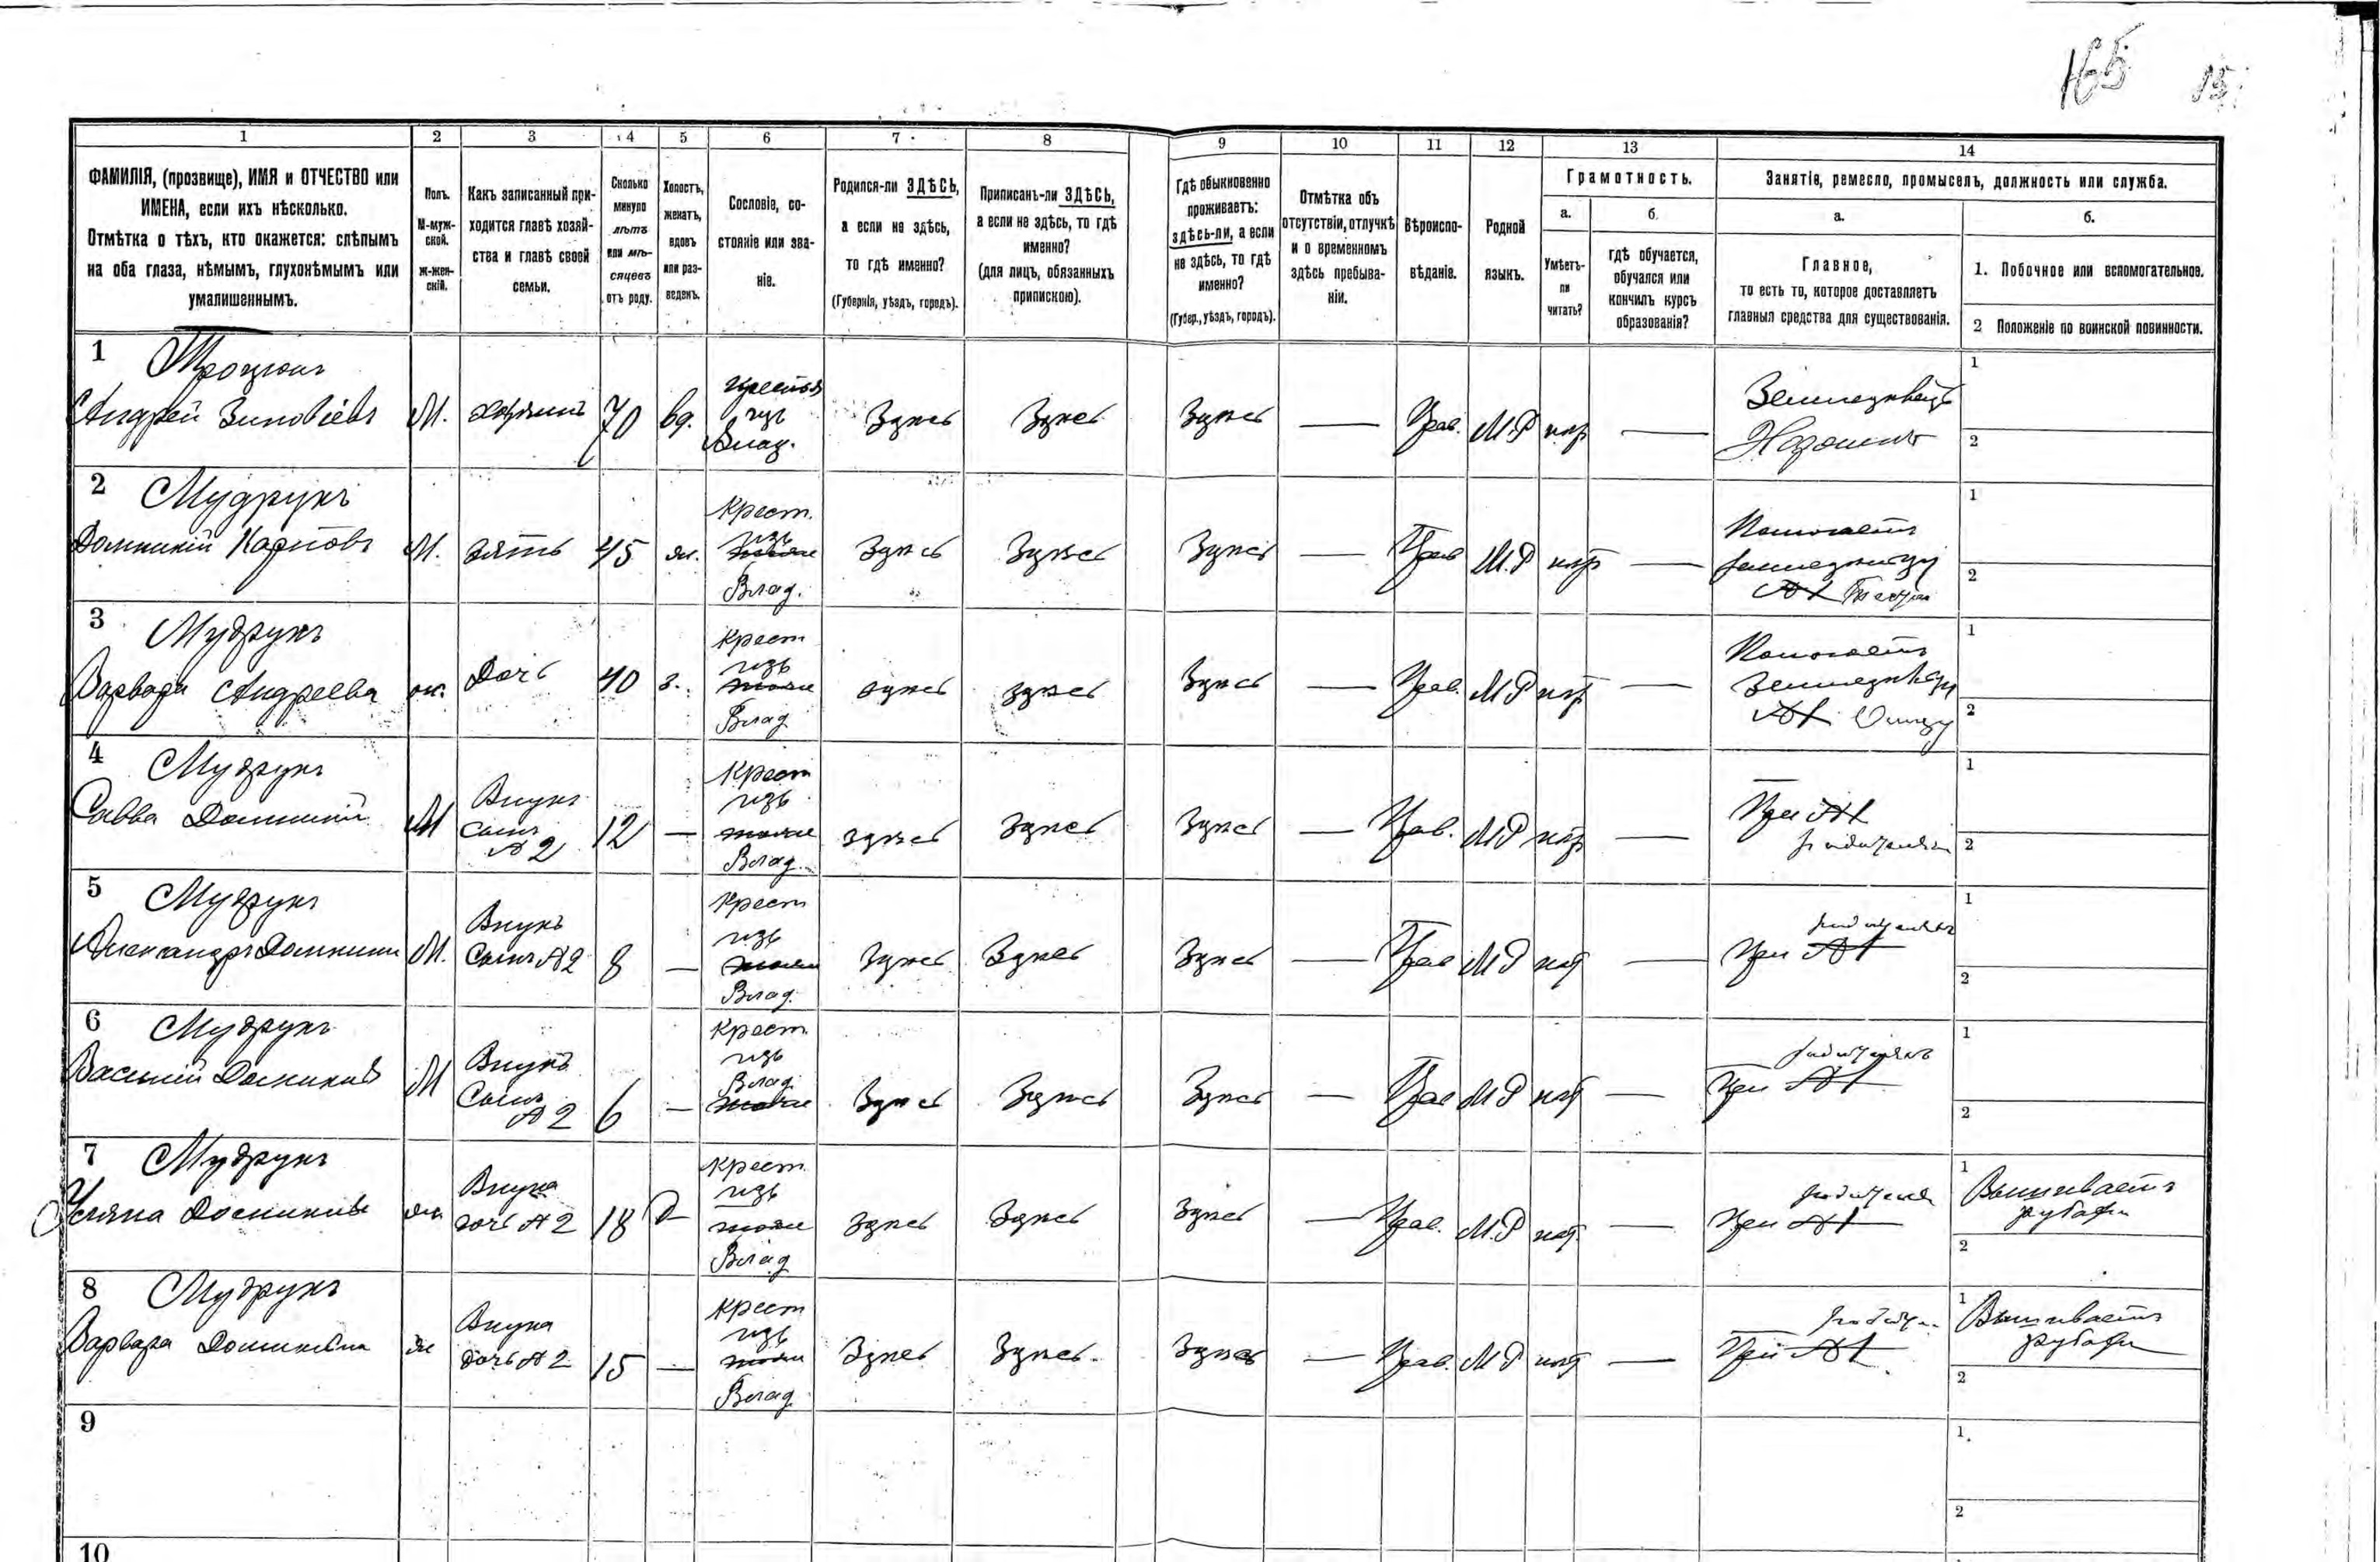 165 15
1 2 3 4 5 6 7 8 9 10 11 12 13 14
ФАМИЛІЯ, (прозвище), ИМЯ и ОТЧЕСТВО или
ИМЕНА, если ихъ нѣсколько.
Отмѣтка о тѣхъ, кто окажется: слѣпымъ
на оба глаза, нѣмымъ, глухонѣмымъ или
умалишеннымъ.
Полъ.
М-муж-
ской.
ж-жен-
скій.
Какъ записанный при-
ходится главѣ хозяй-
ства и главѣ своей
семьи.
Сколько
минуло
лѣтъ
или мѣ-
сяцевъ
отъ роду.
Холостъ,
женатъ,
вдовъ
или раз-
веденъ.
Сословіе, со-
стояніе или зва-
ніе.
Родился-ли ЗДѢСЬ,
а если не здѣсь,
то гдѣ именно?
(Губернія, уѣздъ, городъ).
Приписанъ-ли ЗДѢСЬ,
а если не здѣсь, то гдѣ
именно?
(для лицъ, обязанныхъ
припискою).
Гдѣ обыкновенно
проживаетъ:
здѣсь-ли, а если
не здѣсь, то гдѣ
именно?
(Губер., уѣздъ, городъ).
Отмѣтка объ
отсутствіи, отлучкѣ
и о временномъ
здѣсь пребыва-
ніи.
Вѣроиспо-
вѣданіе.
Родной
языкъ.
Грамотность.
а.
Умѣетъ-
ли
читать?
б.
гдѣ обучается,
обучался или
кончилъ курсъ
образованія?
Занятіе, ремесло, промыселъ, должность или служба.
а.
Главное,
то есть то, которое доставляетъ
главныя средства для существованія.
б.
1. Побочное или вспомогательное.
2 Положеніе по воинской повинности.
1
Андрей Зиновіевъ
М.
хозяинъ
70
вд.
крестья
изъ
Влад.
Здѣсь
Здѣсь
Здѣсь
—
Прав.
М.Р
нѣт
—
Земледѣлецъ
1
2
2 Мудрукъ
Карповъ
М.
зять
45
ж.
Крест.
изъ
Влад.
Здѣсь
Здѣсь
Здѣсь
—
Прав
М.Р
нѣт
—
Помогаетъ
тестю
1
2
3 Мудрукъ
Варвара Андреева
ж.
Дочь
40
з.
Крест
изъ
Влад
здѣсь
здѣсь
Здѣсь
—
Прав.
М Р
нѣт
—
Помогаетъ
Отцу
1
2
4 Мудрукъ
Савва
М
Внукъ
сынъ
№ 2
12
—
Крест
изъ
Влад.
здѣсь
Здѣсь
Здѣсь
—
Прав.
М Р
нѣт
—
При №1
родителяхъ
1
2
5 Мудрукъ
Александръ
М.
Внукъ
Сынъ № 2
8
—
Крест
изъ
Влад.
Здѣсь
Здѣсь
Здѣсь
—
Прав
М Р
нѣт
—
родителяхъ
При №1
1
2
6 Мудрукъ
Василій
М
Внукъ
Сынъ
№ 2
6
—
Крест.
изъ
Влад.
Здѣсь
Здѣсь
Здѣсь
—
Прав
М Р
нѣт
—
родителяхъ
При №1
1
2
7 Мудрукъ
ж.
Внука
дочь № 2
18
Д
Крест.
изъ
Влад
здѣсь
Здѣсь
Здѣсь
—
Прав.
М.Р
нѣт.
—
При №1
1 Вышиваетъ
рубахи
2
8 Мудрукъ
Варвара
ж
Внука
дочь № 2
15
—
Крест
изъ
Влад
Здѣсь
Здѣсь.
Здѣсь
—
Прав.
М Р
нѣт
—
При №1
1 Вышиваетъ
рубахи
2
9
1.
2
10